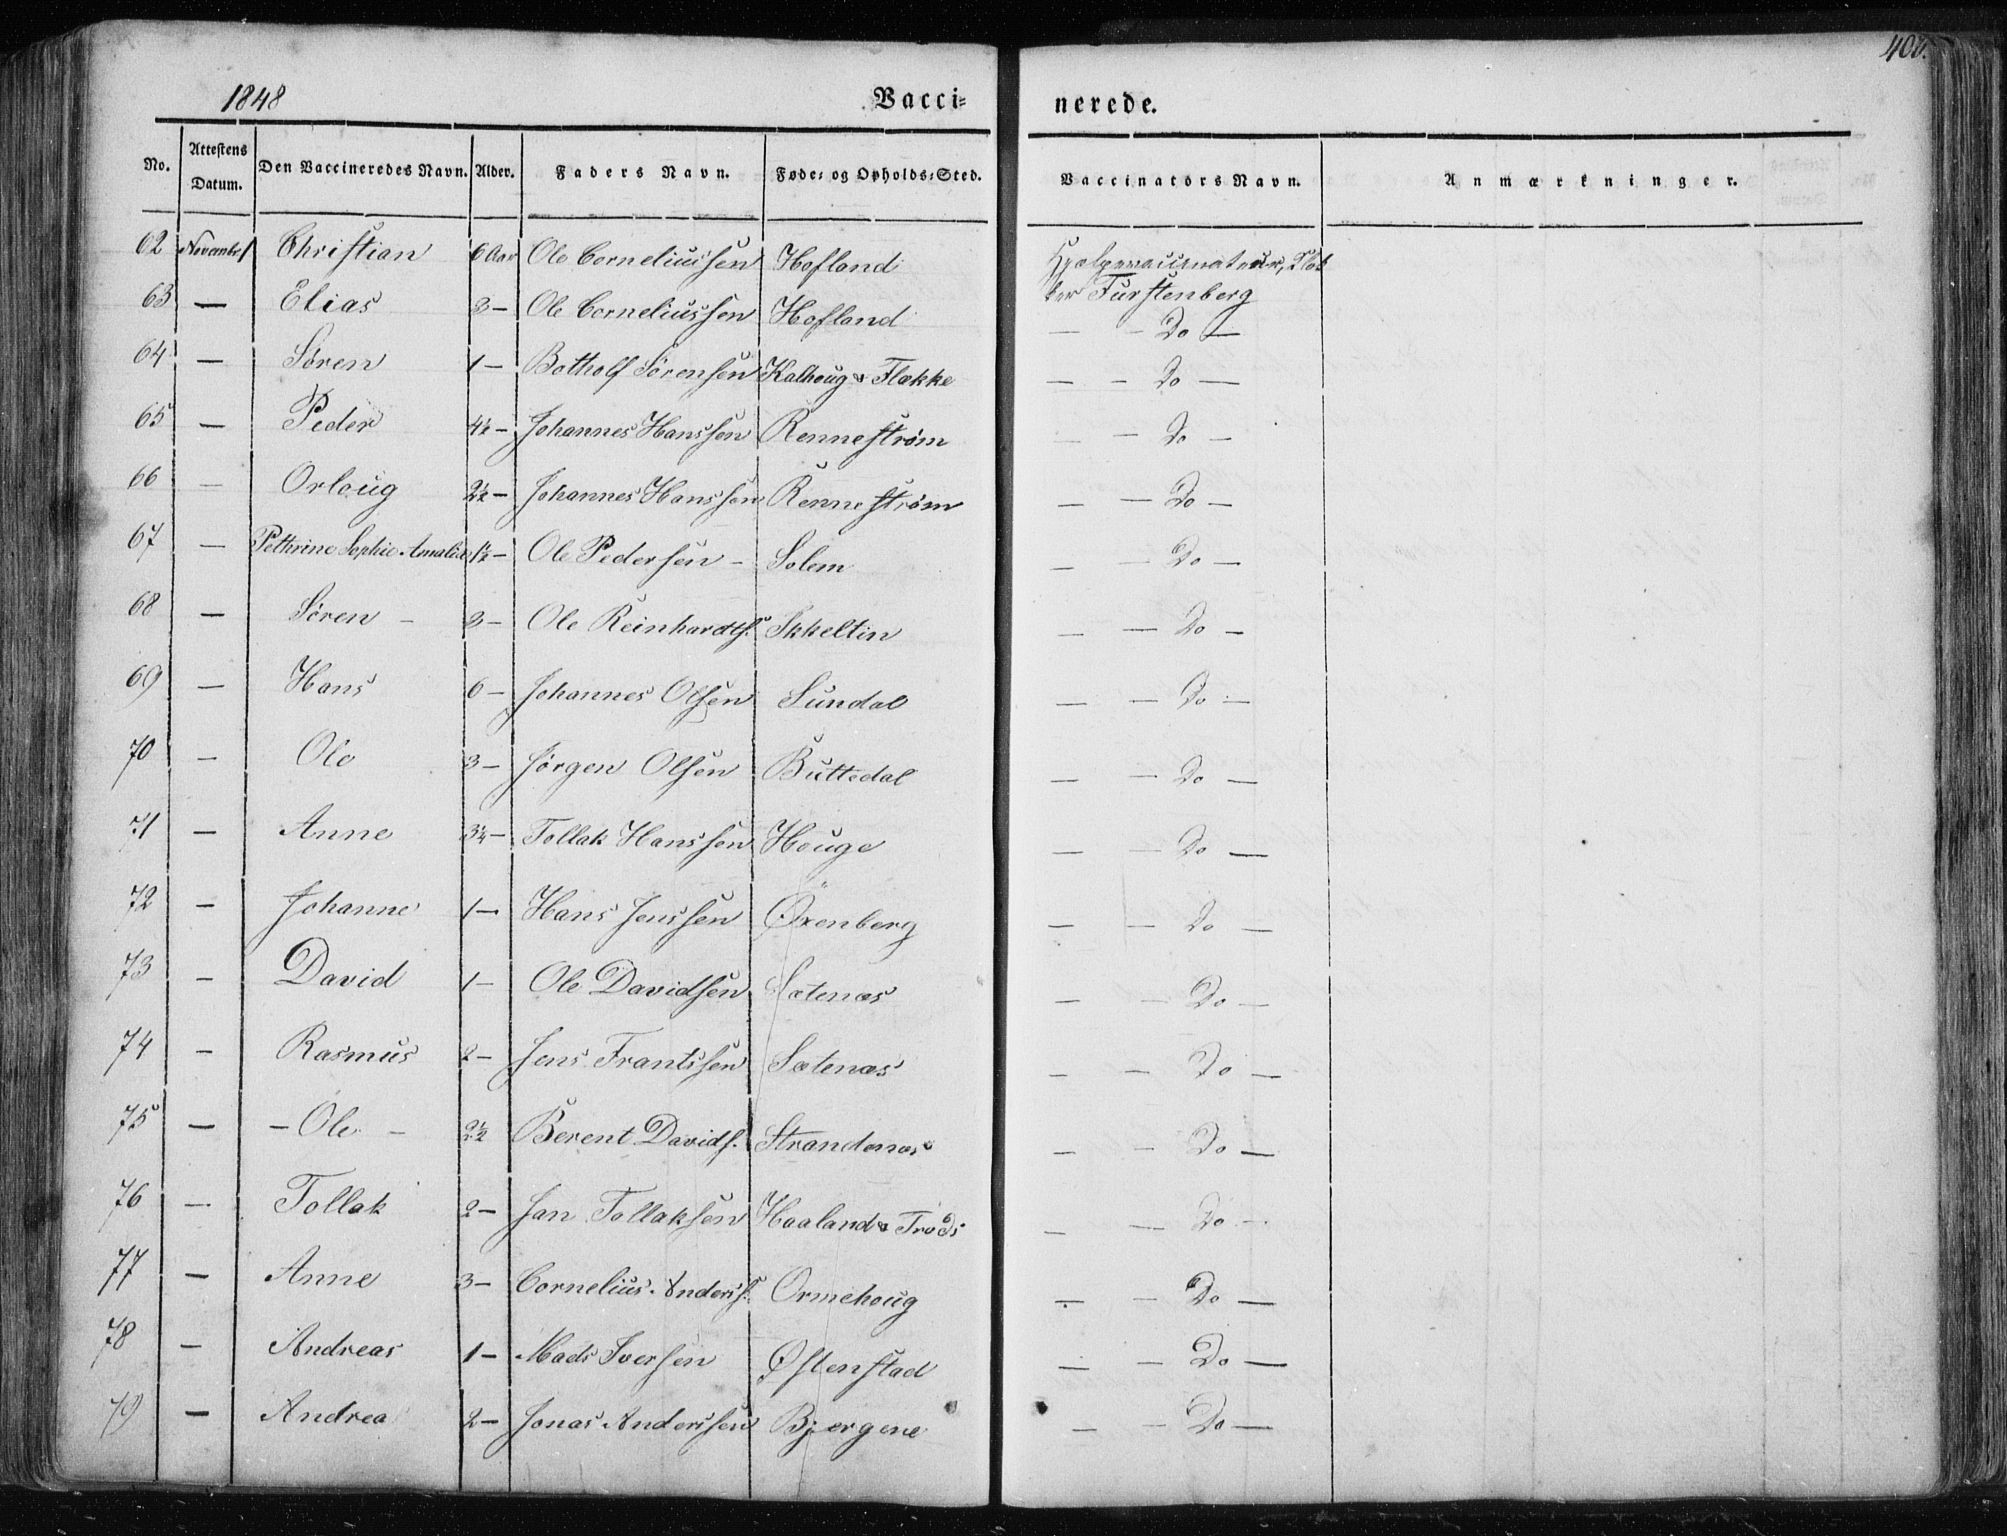 400.
1848 Vacci= nerede.
No. Attestens Datum. Den Vaccineredes Navn. Alder. Faders Navn. Føde= og Opholds=Sted. Vaccinators Navn. Anmærkninger.
62 Novembr 1 Christian 6 Aar Ole Corneliussen Hofland
63 — Elias 3 — Ole Corneliussen Hofland Furstenberg
— — Do —
64 — Søren 1 — Botholf Sørensen Kalhoug & Flække — — Do —
65 — Peder 4½ — Johannes Hanssen Rennestrøm — — Do —
66 — Orloug 2½ — Johannes Hanssen Rennestrøm — — Do —
67 — Pethrine Sophie Amalia 1½ — Ole Pedersen — Solem — — Do —
68 — Søren — 3 — Ole Reinhardts. Skkeltin — — Do —
69 — Hans 6 — Johannes Olsen Sundal — — Do —
70 — Ole 3 — Jørgen Olsen Buttedal — — Do —
71 — Anne 3¼ — Tollak Hanssen Houge — — Do —
72 — Johanne 1 — Hans Jenssen Øxenberg — — Do —
73 — David 1 — Ole Davidsen Sætenæs — — Do —
74 — Rasmus 2 — Jens Frantssen Sætenæs — — Do —
75 — — Ole — 2½ Berent Davids. Strandenæs — — Do —
76 — Tollak 2 — Jan Tollaksen Haaland & — — Do —
77 — Anne 3 — Cornelius Anders. Ormehoug — — Do —
78 — Andreas 1 — Mads Iversen Østenstad — — Do —
79 — Andrea 2 — Jonas Anderssen Bjergene — — Do —